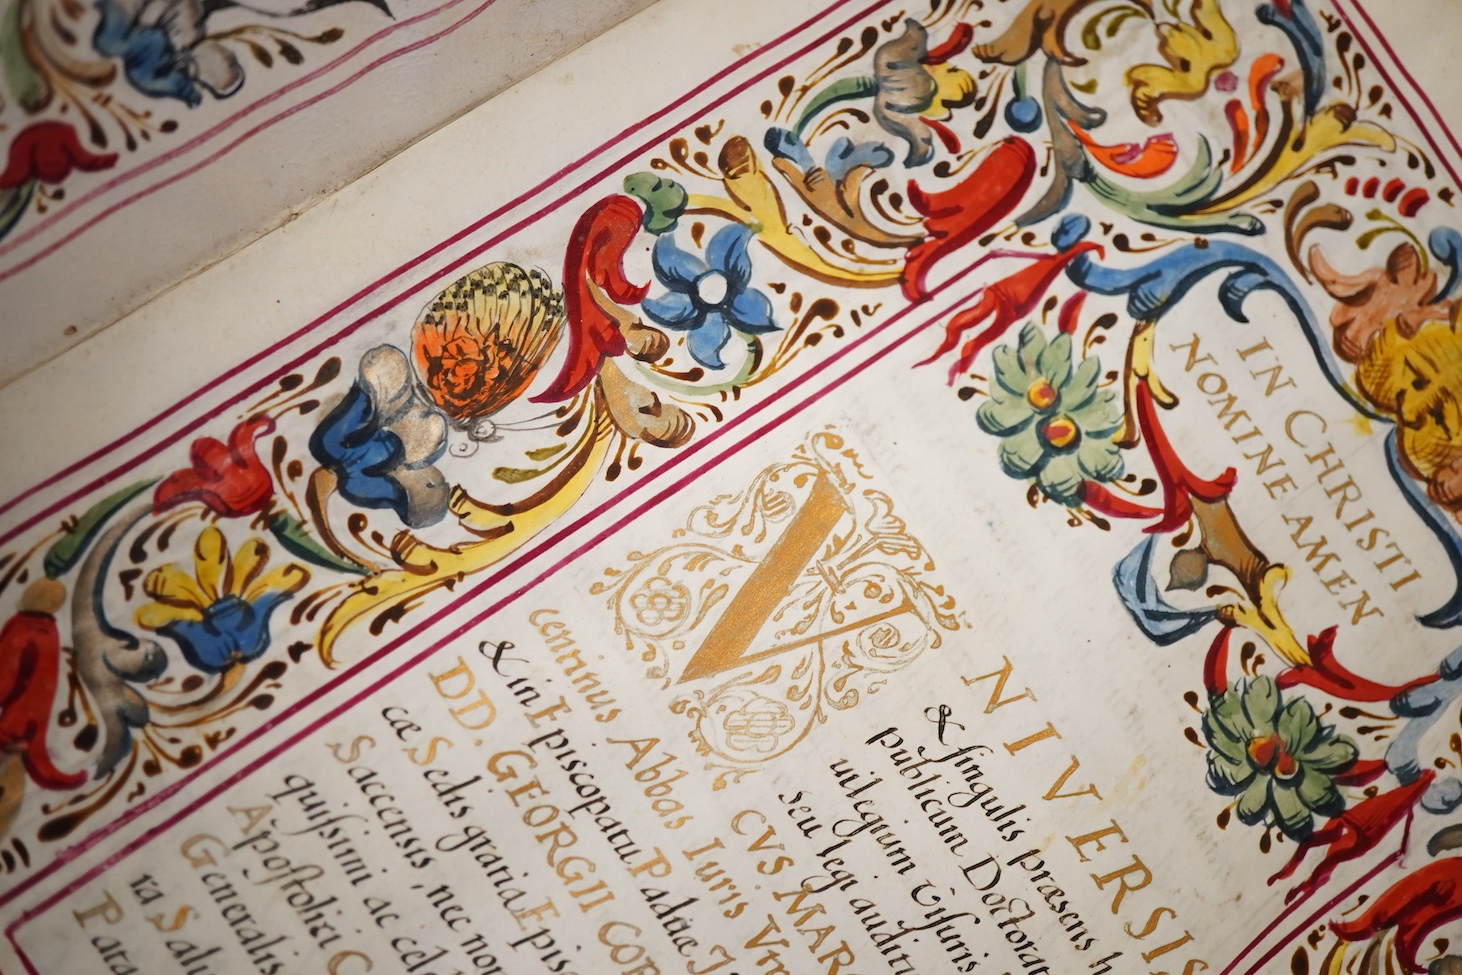 IN CHRISTI
NOMINE AMEN
VNIVERSIS
& ſingulis præsens h
publicum Doctorat
uilegium Viſuris
seu legi auditu
CVS MARC
Abbas Iuris Vtr
& in Episcopatu Paduæ I
DD. GEORGII COR
cæ Sedis gratia Epis
Saccensis, nec no
quiſsimi ac cele
Apoſtolici C
Generalis
ra Sali
Pata